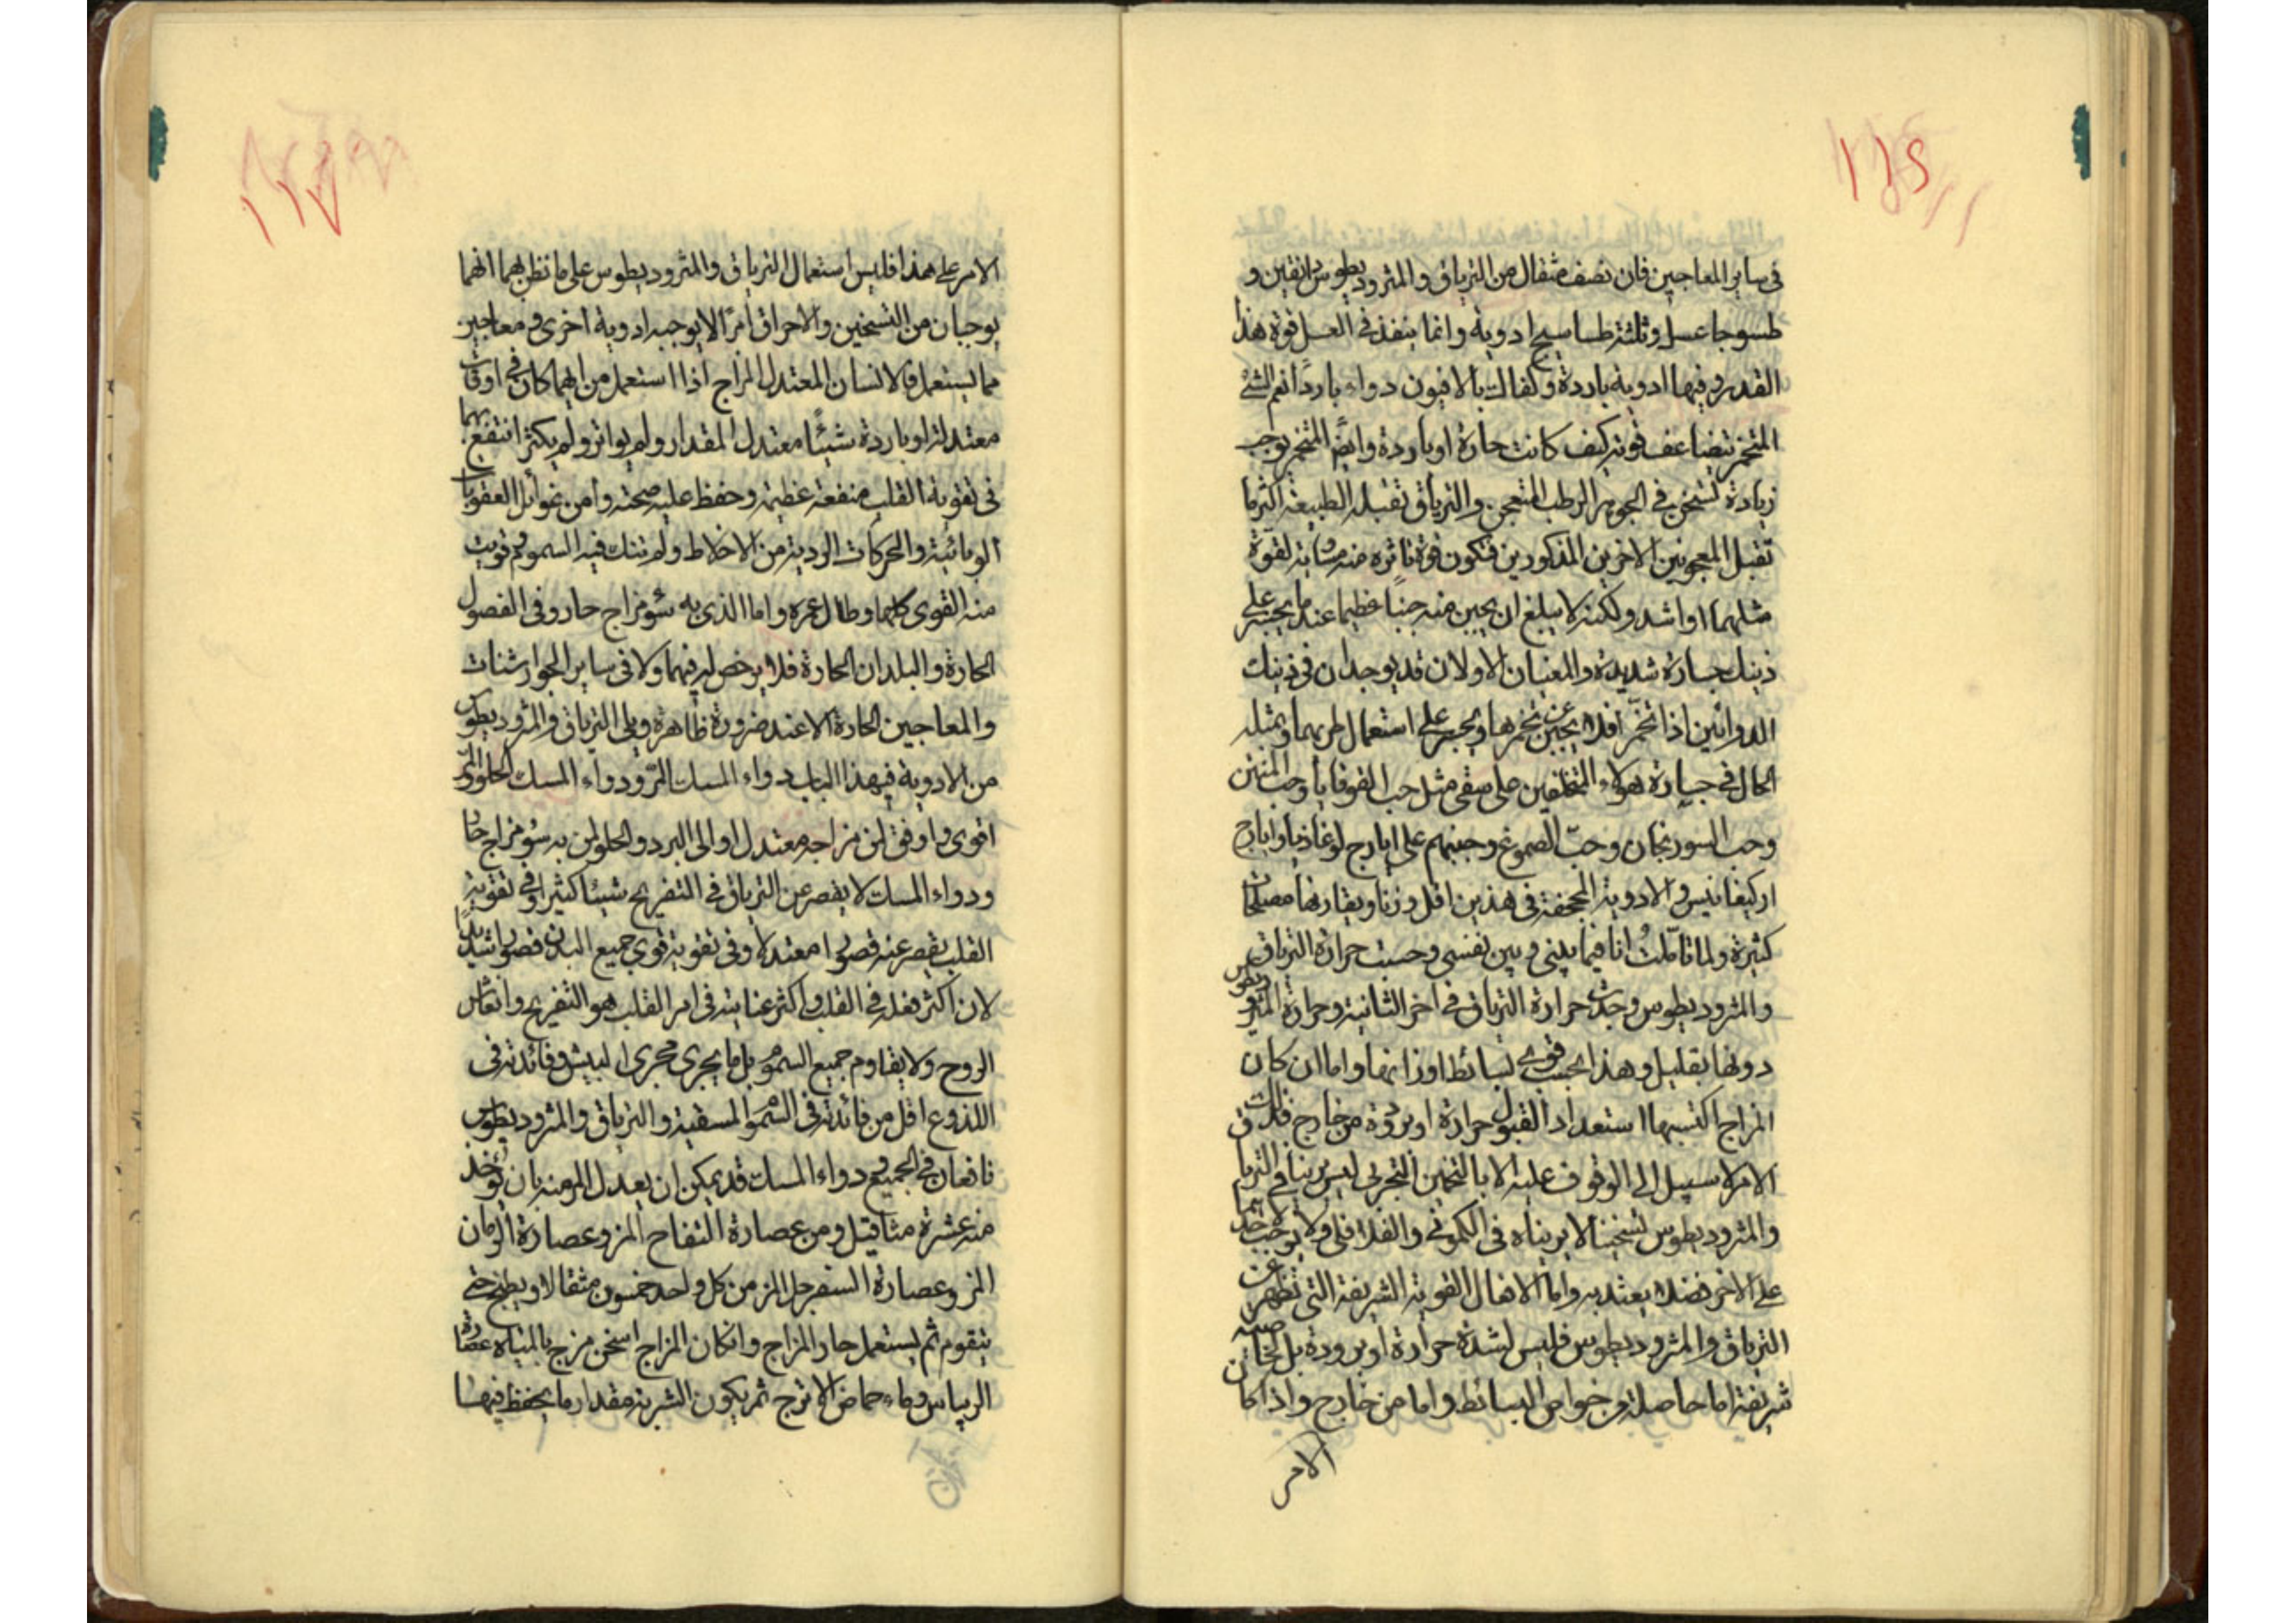 ١١٦
في ساير المعاجين فان نصف مثقال من الترياق والمثروديطوس دانقين و
طسوجا عسل وثلثة طساسيج ادوية وانما ينفذ في العسل قوة هذا
القدر وفيها ادوية باردة وكفاك بالافيون دواء باردا نعم الشئ
المتخمر تتضاعف قوته كيف كانت حارة او باردة وايضا التخمر يوجب
زيادة تسخن في الجوهر الرطب المتعجن والترياق تقبله الطبيعة اكثر ما
تقبل المعجونين الاخرين المذكورين فتكون قوة تاثره منه مشابهة لقوة
مثلهما او اشد ولكنه لا يبلغ ان يجبن منه جبنا عظيما عند ما يجسر على
ذينك جسارة شديدة والمعنيان الاولان قد يوجدان في ذينك
الدوائين اذا تخمرا فلا يجبن عن تخمرها ويجسر على استعمال طريهما وبمثله
الحال في جسارة هولاء المتخلفين على سقي مثل حب القوقايا وحب المنتن
وحب السورنجان وحب الصموغ وجبنهم على ايارج لوغاذيا وايارج
اركيغانيس والادوية المجحفة في هذين اقل وزنا ويقارنها مصلحات
كثيرة ولما تاملت انا فيما بيني وبين نفسي وحسبت حرارة الترياق
والمثروديطوس وجدت حرارة الترياق في اخر الثانية وحرارة المثروديطوس
دونها بقليل وهذا بحسب قوى بسائطها واوزانها واما ان كان
المزاج اكسبها استعدادا لقبول حرارة او برودة من خارج فذلك
الامر لا سبيل الى الوقوف عليه الا بالتخمين التجربي ليس بنا في الترياق
والمثروديطوس تسخينا لا يريناه في الكموني والفلافلي ولا يوجب لاحدهما
على الاخر فضلا يعتد به واما الافعال القوية الشريفة التي تظهر عن
الترياق والمثروديطوس فليس لشدة حرارة او برودة بل لخاصية
شريفة اما حاصلة من خواص البسائط واما من خارج واذا كان
الامر
١١٧
الامر على هذا فليس استعمال الترياق والمثروديطوس على ما نظن بهما انهما
يوجبان من التسخين والاحراق امرا لا يوجبه ادوية اخرى ومعاجين
مما يستعمل فالانسان المعتدل المزاج اذا استعمل من ايهما كان في اوقات
معتدلة او باردة شيئا معتدل المقدار ولم يواتر ولم يكثر انتفع بهما
في تقوية القلب منفعة عظيمة وحفظ عليه صحته وامن غوائل العفونات
الوبائية والحركات الردية من الاخلاط ولم تنك فيه السموم وقويت
منه القوى كلها وطال عمره واما الذي به سوء مزاج حار وفي الفصول
الحارة والبلدان الحارة فلا يرخص له فيهما ولا في ساير الجوارشنات
والمعاجين الحارة الا عند ضرورة ظاهرة ويلى الترياق والمثروديطوس
من الادوية في هذا الباب دواء المسك المر ودواء المسك الحلو والمر
اقوى واوفق لمن مزاجه معتدل او الى البرد والحلو لمن به سوء مزاج حار
ودواء المسك لا يقصر عن الترياق في التفريح شيئا كثيرا وفي تقوية
القلب يقصر عنه قصورا معتدلا وفي تقوية قوى جميع البدن قصورا شديدا
لان اكثر فعله في القلب واكثر عنايته في امر القلب هو التفريح وانعاش
الروح ولا يقاوم جميع السموم بل ما يجري مجرى البيش وفائدته في
اللذوع اقل من فائدته في السموم المسقية والترياق والمثروديطوس
نافعان في الجميع ودواء المسك قد يمكن ان يعدل المر منه بان يؤخذ
منه عشرة مثاقيل ومن عصارة التفاح المز وعصارة الرمان
المز وعصارة السفرجل المز من كل واحد خمسون مثقالا ويطبخ حتى
يتقوم ثم يستعمل حار المزاج وان كان المزاج اسخن مزج بالمياه عصارة
الريباس وماء حماض الاترج ثم يكون الشربة مقدار ما يحفظ فيها